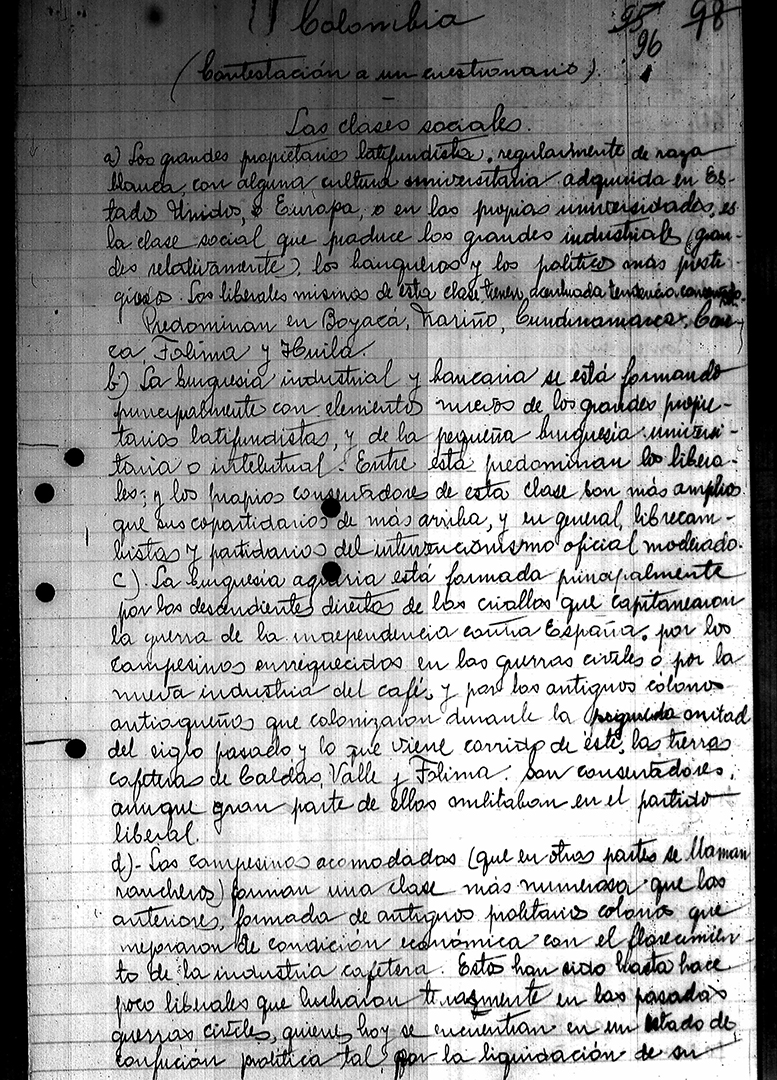 Colombia
95 98
96
(Contestación a un cuestionario).
Las clases sociales.
a) Los grandes propietarios latifundistas, regularmente de raza
blanca, con alguna cultura universitaria adquirida en Es-
tados Unidos, o Europa, o en las propias universidades, es
la clase social que produce los grandes industriales (gran-
des relativamente), los banqueros y los políticos más presti-
giosos. Los liberales mismos de esta clase tienen acentuada tendencia
Predominan en Boyacá, Nariño, Cundinamarca, Cau-
ca, Tolima y Huila.
b) La burguesía industrial y bancaria se está formando
principalmente con elementos nuevos de los grandes propie-
tarios latifundistas, y de la pequeña burguesía universi-
taria o intelectual. Entre esta predominan los libera-
les; y los propios conservadores de esta clase son más amplios
que sus copartidarios de más arriba, y en general, librecam-
bistas y partidarios del intervencionismo oficial moderado.
c) La burguesía agraria está formada principalmente
por los descendientes directos de los criollos que capitanearon
la guerra de la independencia contra España, por los
campesinos enrriquecidos en las guerras civiles o por la
nueva industria del café, y por los antiguos colonos
antioqueños que colonizaron durante la segunda mitad
del siglo pasado y lo que viene corrido de éste, las tierras
cafeteras de Caldas, Valle y Tolima. Son conservadores,
aunque gran parte de ellos militaban en el partido
liberal.
d)- Los campesinos acomodados (que en otras partes se llaman
rancheros) forman una clase más numerosa que las
anteriores, formada de antiguos prolitarios colonos que
mejoraron de condición económica con el florecimien-
to de la industria cafetera. Estos han sido hasta hace
poco liberales que lucharon tenazmente en las pasadas
guerras civiles, quienes hoy se encuentran en un estado de
confución prolitica tal, por la liquidación de su